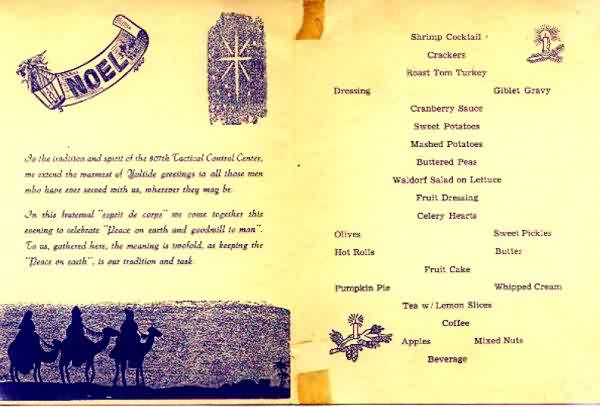 NOEL
In the tradition and spirit of the 807th Tactical Control Center,
we extend the warmest of Yuletide greetings to all those men
who have ever served with us, wherever they may be.
In this fraternal "esprit de corps" we come together this
evening to celebrate "Peace on earth and goodwill to man".
To us, gathered here, the meaning is twofold, as keeping the
"Peace on earth", is our tradition and task.
Shrimp Cocktail
Crackers
Roast Tom Turkey
Dressing Giblet Gravy
Cranberry Sauce
Sweet Potatoes
Mashed Potatoes
Buttered Peas
Waldorf Salad on Lettuce
Fruit Dressing
Celery Hearts
Olives Sweet Pickles
Hot Rolls Butter
Fruit Cake
Pumpkin Pie Whipped Cream
Tea w/Lemon Slices
Coffee
Apples Mixed Nuts
Beverage